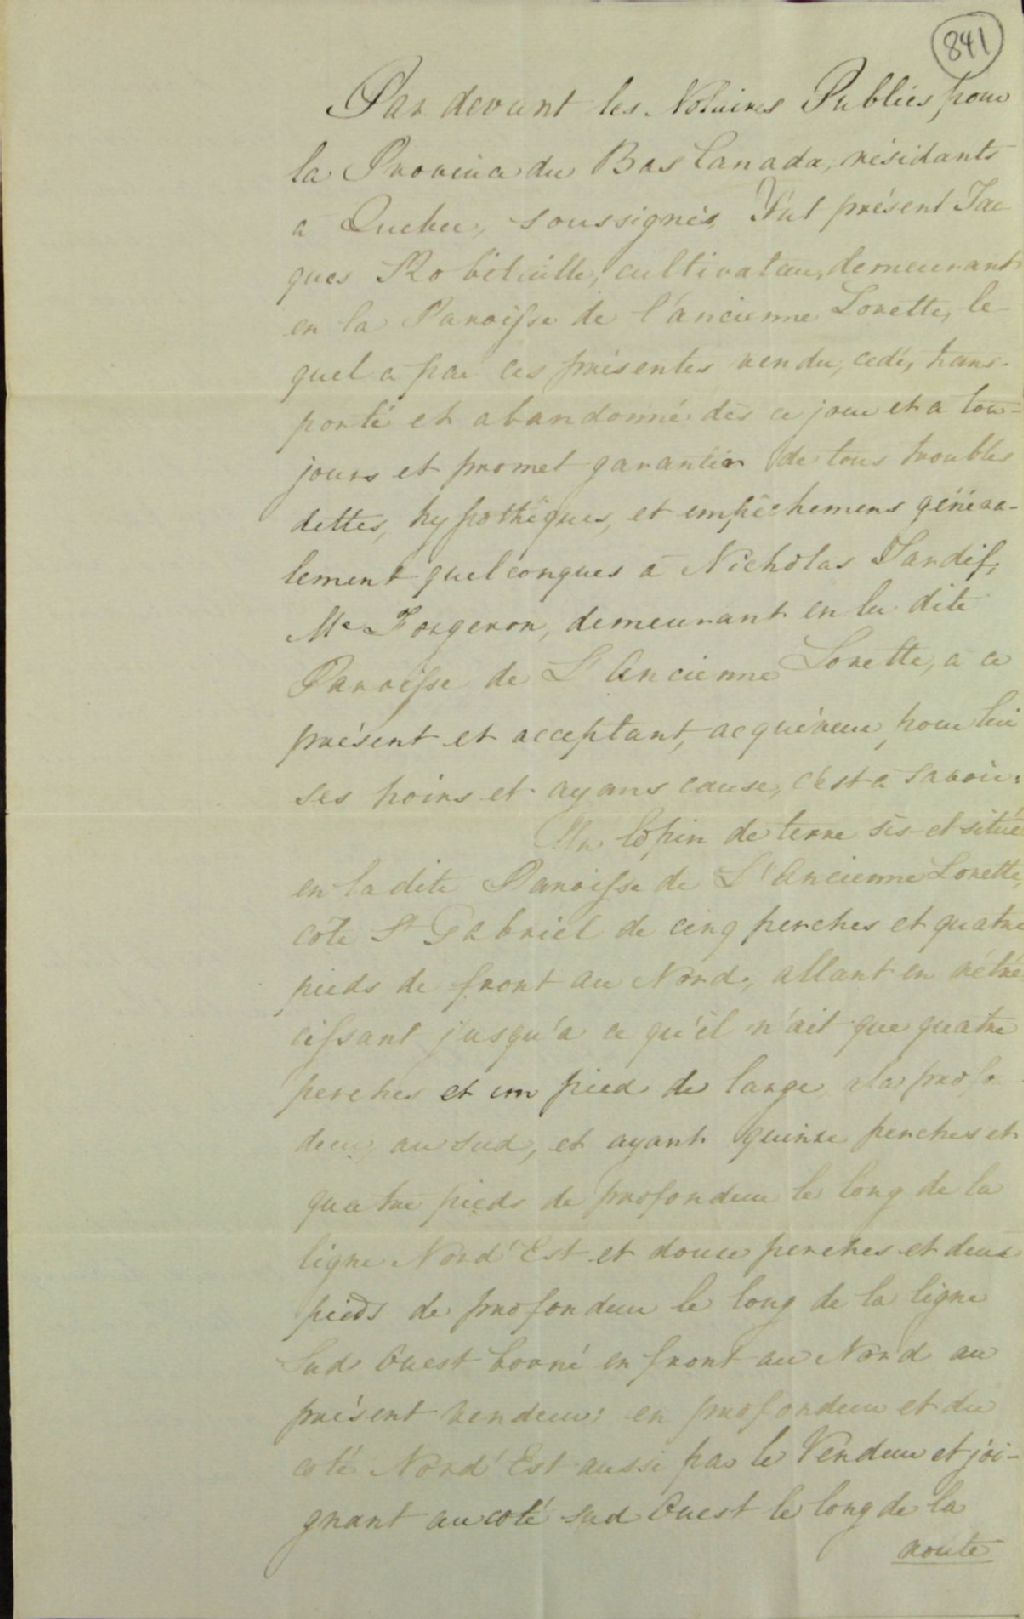 841
Par devant les Notaires Publics, pour
la Province du Bas Canada, résidants
a Quebec, soussignés, Fut présent Jac
ques Robitaille, cultivateur, demeurant
en la Paroisse de l'ancienne Lorette, le-
quel a par ces présentes vendu, cedé, trans-
porté et abandonné dès ce jour et a tou-
jours et promet garantir de tous troubles
dettes, hypothêques, et empêchemens généra-
lement quelconques à Nicholas Tardif,
Me Forgeron, demeurant en la dite
Paroisse de L'Ancienne Lorette, a ce
présent et acceptant, acquéreur pour lui
ses hoirs et ayans cause, c'est a savoir:
Un lopin de terre sis et situé
en la dite Paroisse de L'Ancienne Lorette,
coté St Gabriel de cinq perches et quatre
pieds de front au Nord, allant en rétré
cissant jusqu'a ce qu'il n'ait que quatre
perches et un pied de large a la profon
deur au sud, et ayant quinze perches et
quatre pieds de profondeur le long de la
ligne Nord'Est et douze perches et deux
pieds de profondeur le long de la ligne
Sud Ouest borné en front au Nord au
présent vendeur: en profondeur et du
coté Nord'Est aussi par le Vendeur et joi-
gnant au coté sud Ouest le long de la
route